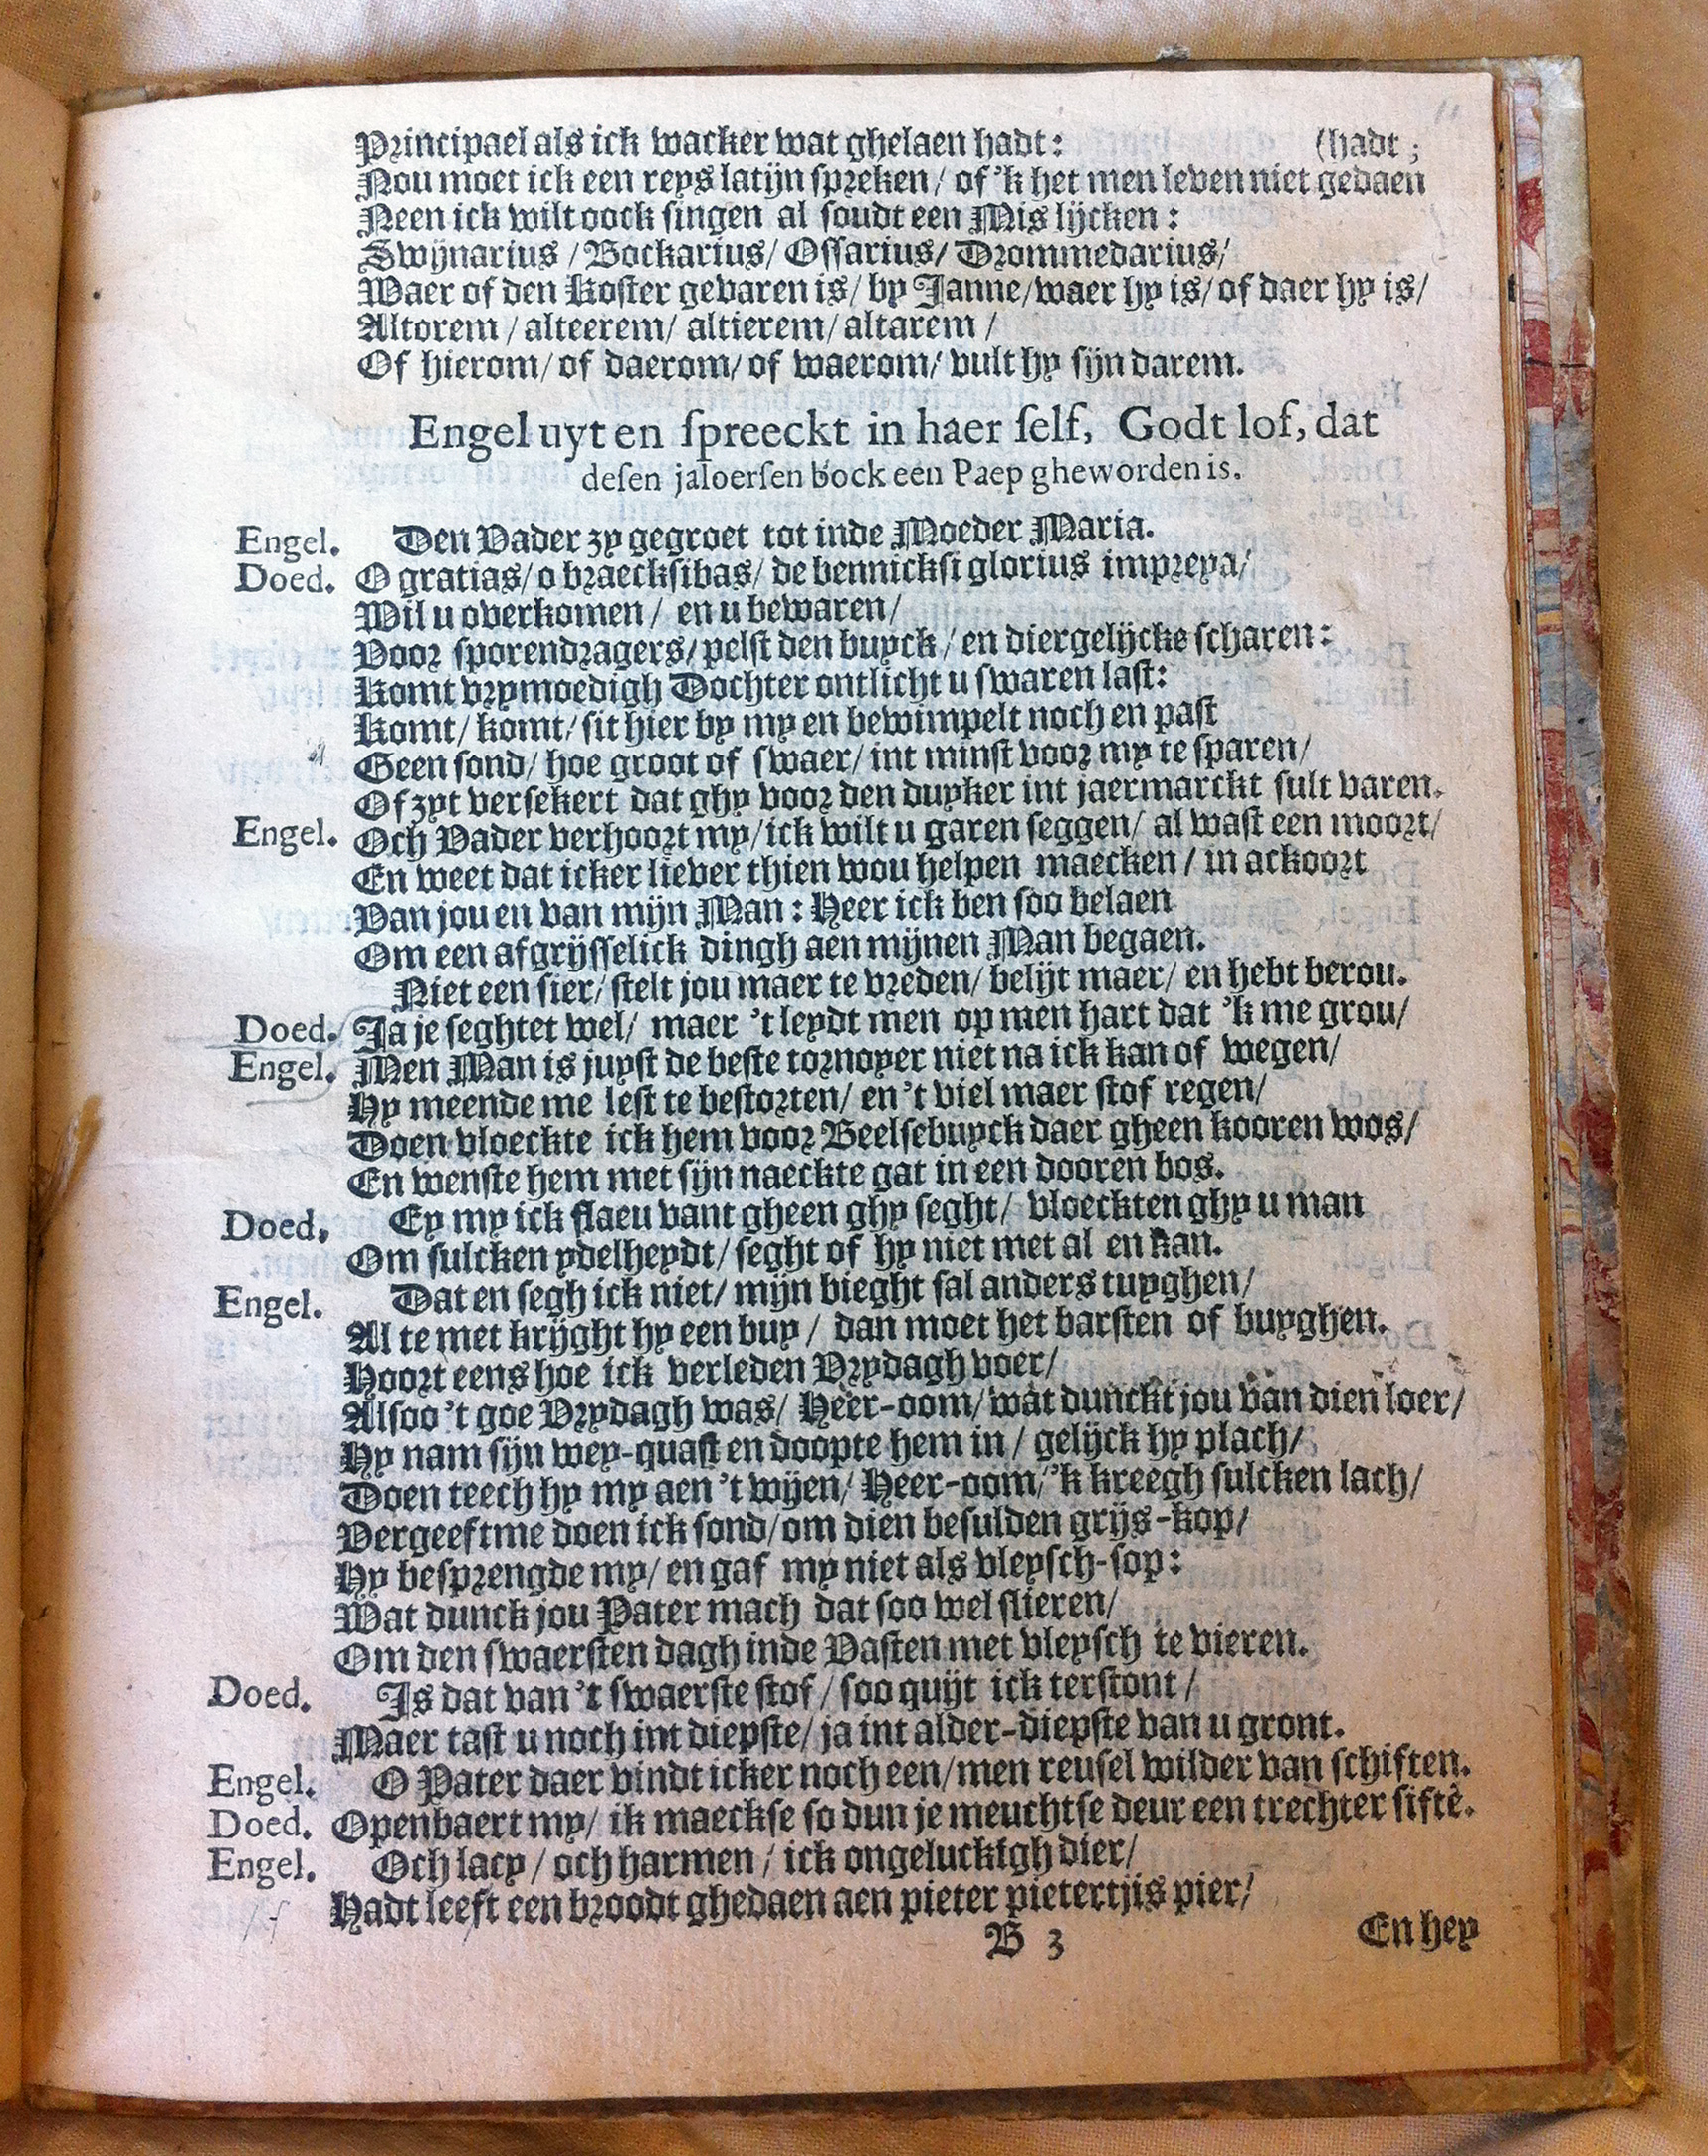 Principael als ick wacker wat ghelaen hadt: (hadt;
Nou moet ick een reys latijn spreken/ of 'k het men leven niet gedaen
Neen ick wilt oock singen al soudt een Mis lijcken:
Swijnarius / Bockarius/ Ossarius/ Drommedarius/
Waer of den Koster gevaren is/ by Janne/waer hy is/ of daer hy is/
Altorem / alteerem/ altierem/ altarem /
Of hierom/ of daerom/ of waerom/ vult hy sijn darem.
Engel uyt en spreeckt in haer self, Godt lof, dat
desen jaloersen bock een Paep gheworden is.
Engel. Den Vader zy gegroet tot inde Moeder Maria.
Doed. O gratias/ o braecksibas/ de bennicksi glorius impreya/
Wil u overkomen / en u bewaren/
Voor sporendragers/ pelst den buyck / en diergelijcke scharen:
Komt vrymoedigh Dochter ontlicht u swaren last:
Komt/ komt/ sit hier by my en bewimpelt noch en past
Geen sond/ hoe groot of swaer/ int minst voor my te sparen/
Of zyt versekert dat ghy voor den duyker int jaermarckt sult varen.
Engel. Och Vader verhoort my/ ick wilt u garen seggen/ al wast een moort/
En weet dat icker liever thien wou helpen maecken / in ackoort
Van jou en van mijn Man: Heer ick ben soo belaen
Om een afgrijsselick dingh aen mijnen Man begaen.
Niet een sier/ stelt jou maer te vreden/ belijt maer/ en hebt berou.
Doed. Ja je seghtet wel/ maer 't leydt men op men hart dat 'k me grou/
Engel. Men Man is juyst de beste tornoyer niet na ick kan of wegen/
Hy meende me lest te bestorten/ en 't viel maer stof regen/
Doen vloeckte ick hem voor Beelsebuyck daer gheen kooren wos/
En wenste hem met sijn naeckte gat in een dooren bos.
Doed. Ey my ick flaeu vant gheen ghy seght/ vloeckten ghy u man
Om sulcken ydelheydt/ seght of hy niet met al en kan.
Engel. Dat en segh ick niet/ mijn bieght sal anders tuyghen/
Al te met krijght hy een buy / dan moet het barsten of buyghen.
Hoort eens hoe ick verleden Vrydagh voer/
Alsoo 't goe Vrydagh was/ Heer-oom/ wat dunckt jou van dien loer/
Hy nam sijn wey-quast en doopte hem in / gelijck hy plach/
Doen teech hy my aen 't wijen/ Heer-oom/ 'k kreegh sulcken lach/
Vergeeftme doen ick sond/ om dien besulden grijs-kop/
Hy besprengde my/ en gaf my niet als vleysch-sop:
Wat dunck jou Pater mach dat soo wel slieren/
Om den swaersten dagh inde Vasten met vleysch te vieren.
Doed. Is dat van 't swaerste stof / soo quijt ick terstont /
Maer tast u noch int diepste/ ja int alder-diepste van u gront.
Engel. O Pater daer vindt icker noch een/ men reusel wilder van schiften.
Doed. Openbaert my/ ik maeckse so dun je meuchtse deur een trechter siftē.
Engel. Och lacy / och harmen / ick ongeluckigh dier/
Hadt leeft een broodt ghedaen aen pieter pietertjis pier/
B 3 En hey